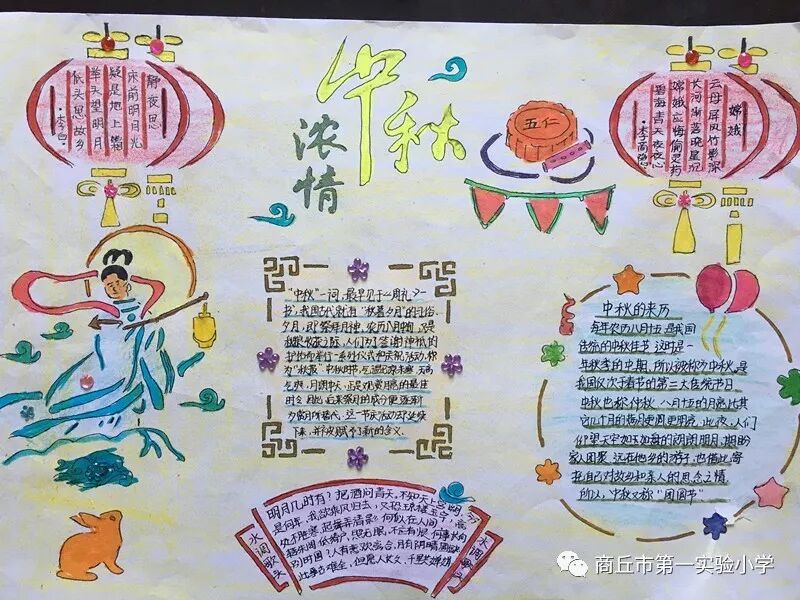 静夜思
床前明月光
疑是地上霜
举头望明月
低头思故乡
·李白·
浓情
中秋
五仁
嫦娥
云母屏风烛影深
长河渐落晓星沉
嫦娥应悔偷灵药
碧海青天夜夜心
·李商隐·
"中秋"一词,最早见于《周礼》一
书,我国古代就有"秋暮夕月"的习俗。
夕月,即祭拜月神。
人们为了答谢神祇的
护佑而举行一系列仪式和庆祝活动,称
为"秋报"。中秋时节,气温已凉未寒,天高
气爽,月朗中天,正是观赏月亮的最佳
时令。因此,后来祭月的成分便逐渐
为赏月所替代,这一节庆活动却延续
下来,并被赋予了新的含义。
中秋的来历
每年农历八月十五是我国
传统的中秋佳节。这时是一
年秋季的中期,所以被称为中秋,是
我国仅次于春节的第二大传统节日。
中秋也称仲秋,八月十五的月亮比其
它几个月的满月更圆更明亮,此夜,人们
仰望天空如玉如盘的朗朗明月,期盼
家人团聚。远在他乡的游子,也借此寄
托自己对故乡和亲人的思念之情。
所以,中秋又称"团圆节"。
水调歌头
明月几时有?把酒问青天。不知天上宫阙,今
是何年。我欲乘风归去,又恐琼楼玉宇,高
处不胜寒。起舞弄清影,何似在人间
转朱阁,低绮户,照无眠。不应有恨,何事长向
别时圆?人有悲欢离合,月有阴晴圆缺,
此事古难全。但愿人长久,千里共婵娟。
水调歌头
商丘市第一实验小学